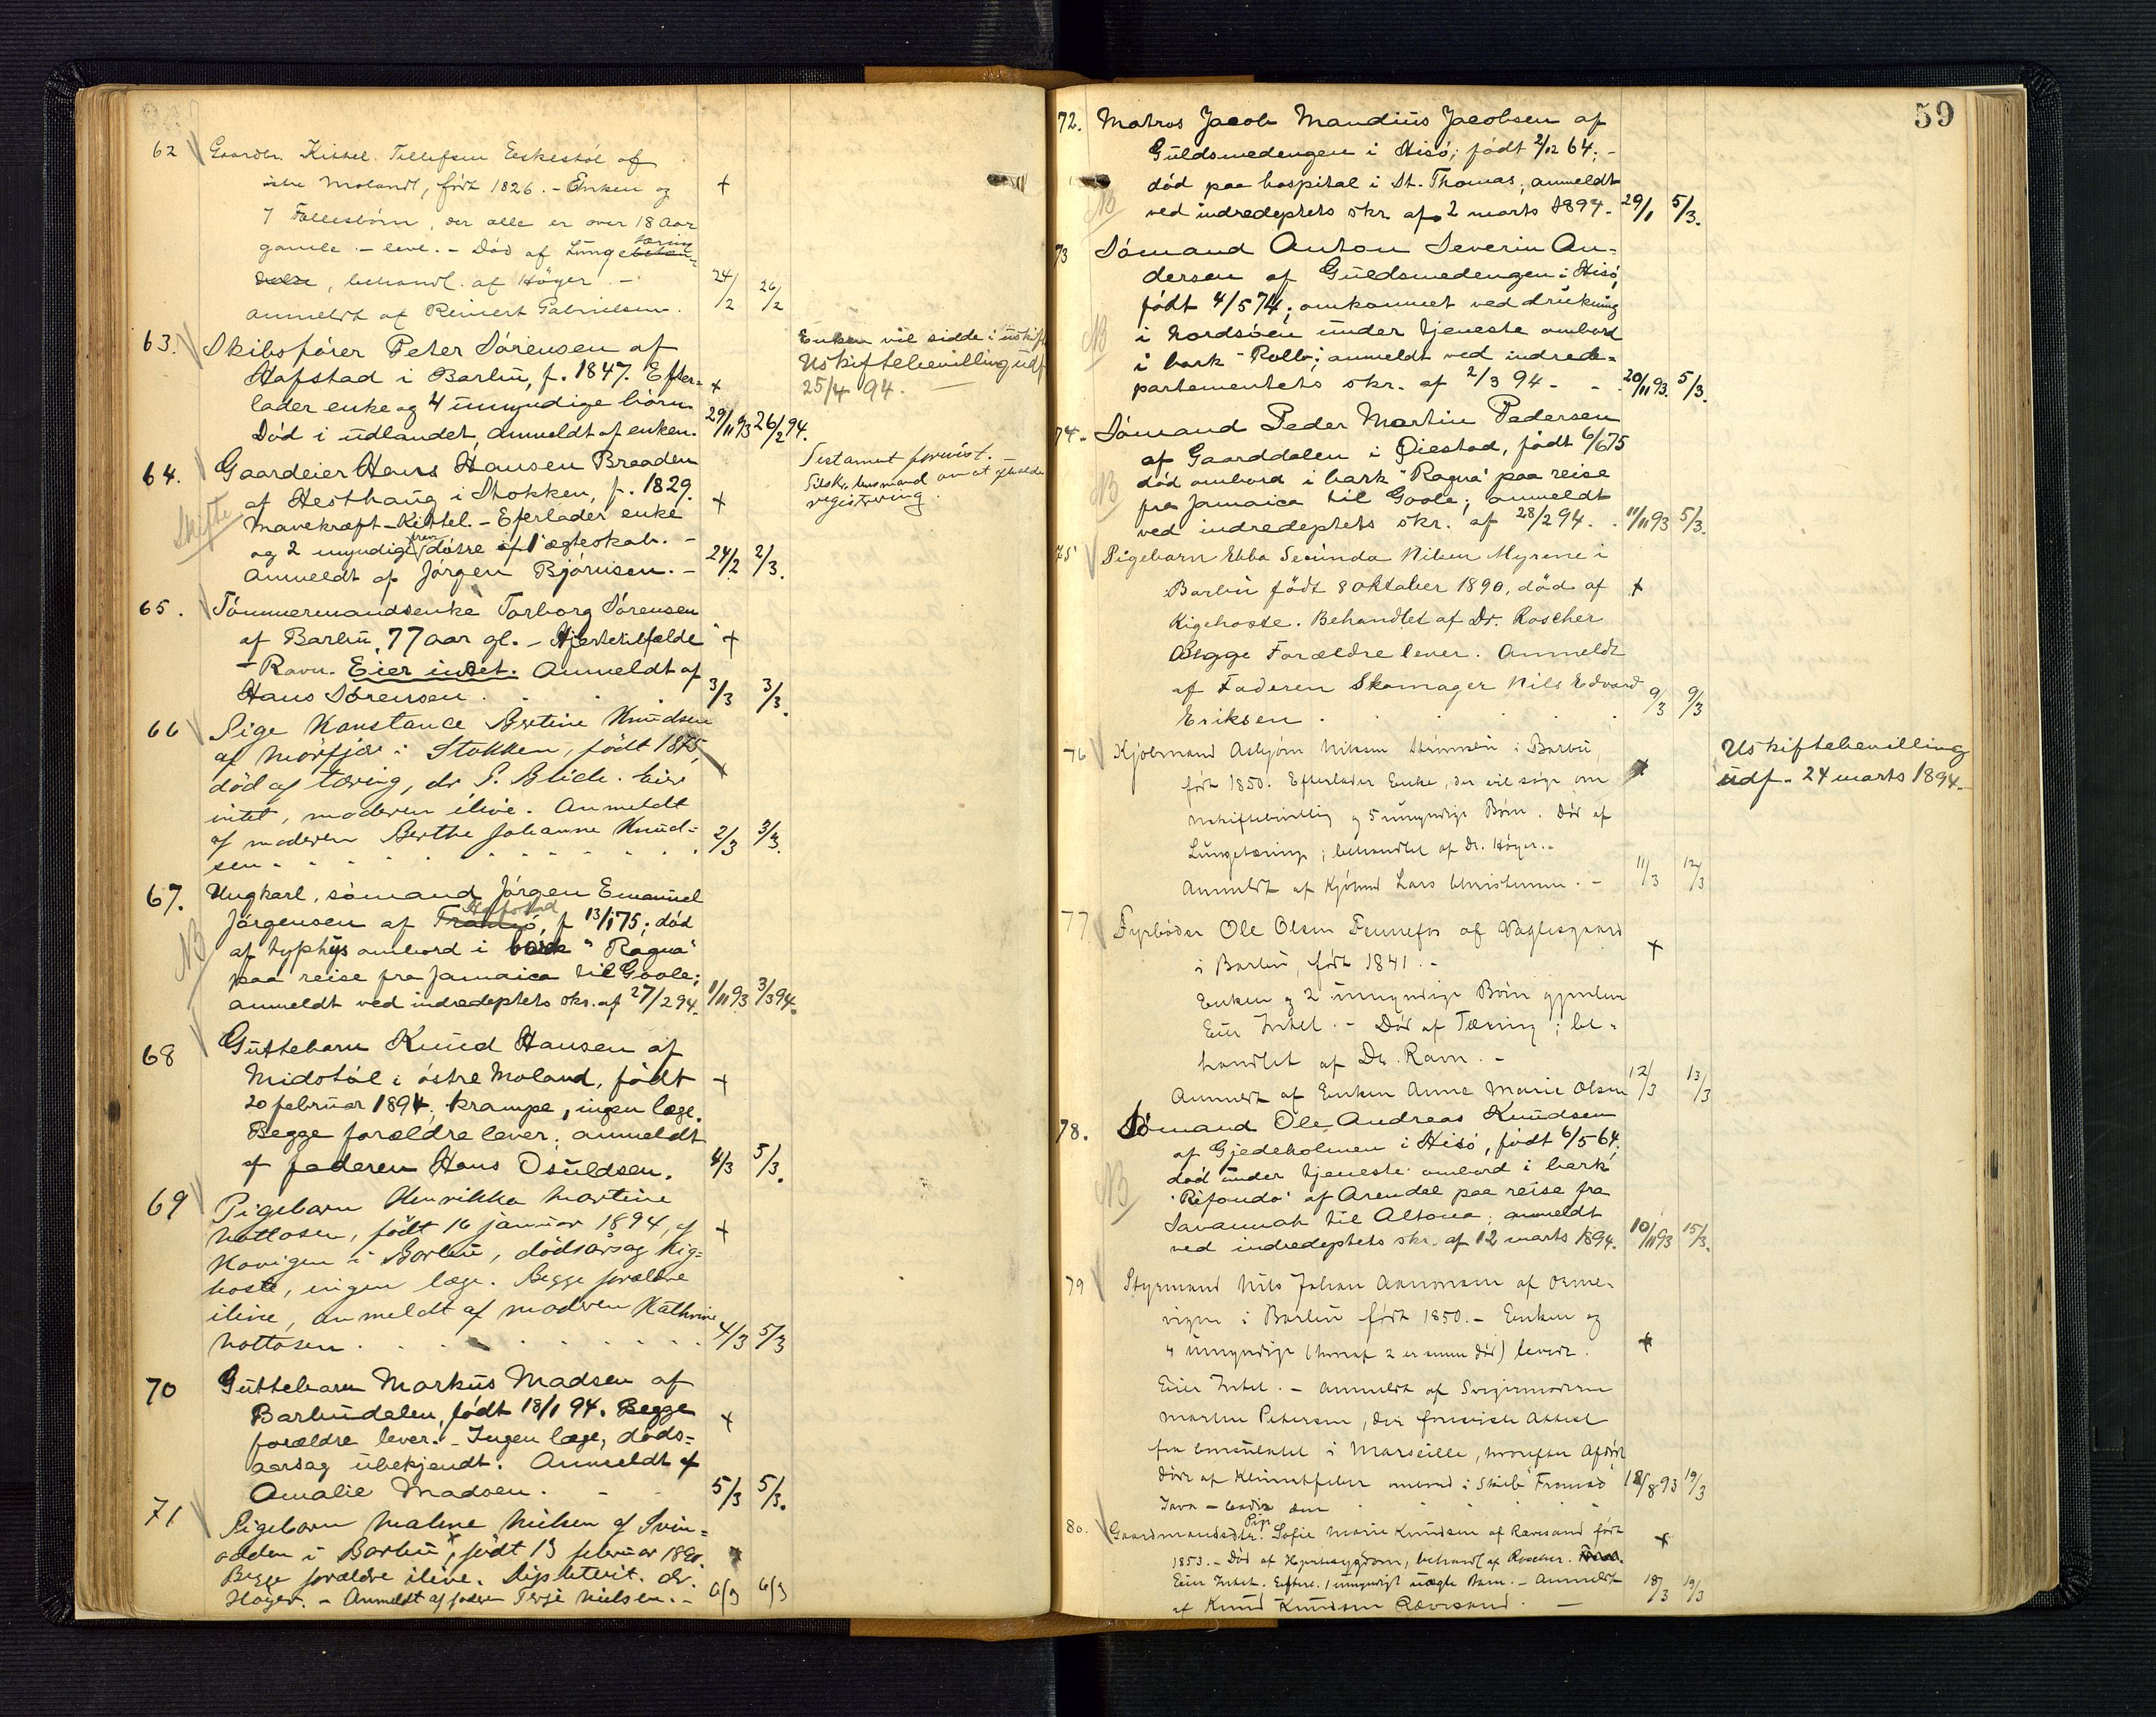 62 Gaardbr. Kittel Tellefsen Eskestöl af
östre Moland, født 1826. - Enken og +
7 Fællesbörn, der alle er over 18 Aar
gamle - leve. - Død af Lunge tæring
behandl. af Höyer. - 24/2 26/2
anmeldt af Reinert Gabrielsen.
63. Skibsfører Peter Sörensen af
Hafstad i Barbu, f. 1847. Efter- +
lader enke og 4 umyndige börn.
Död i udlandet, anmeldt af enken. 29/11 93 26/2 94.
Enken vil sidde i uskift
Uskiftebevilling udf
25/4 94.
64. Gaardeier Hans Hansen Braaden
af Hesthaug i Stokken, f. 1829. +
Mavekræft - Kittel. - Efterlader enke
og 2 myndige døtre af 1 ægteskab. -
anmeldt af Jörgen Björnsen. - 24/2 2/3.
Skifte
Testament forevist. -
registrering.
65. Tömmermandsenke Torborg Sörensen
af Barbu, 77 aar gl. - Hjertetilfælde +
- Ravn. Eier intet. Anmeldt af
Hans Sørensen. 3/3 3/3.
66 Pige Konstance Bertine Knudsen
af Mörfjær i Stokken, født 1875, +
död af tæring, dr P. Blich. Eier
intet, moderen ilive. Anmeldt
af moderen Berthe Johanne Knud- 2/3 3/3.
sen -
67. Ungkarl, sömand Jörgen Emanuel
Jörgensen af Tromö, Hafstad f 13/1 75; död
af typhus ombord i bark "Ragna"
paa reise fra Jamaica til Goole;
anmeldt ved indredeptets skr. af 27/2 94. 1/11 93 3/3 94.
NB
68 Guttebarn Knud Hansen af
Midstöl i östre Moland, født +
20 februar 1894; krampe, ingen læge.
Begge forældre lever; anmeldt
af faderen Hans Osuldsen. 4/3 5/3.
69 Pigebarn Henrikka Martine
Nottosen, født 16 januar 1894, af +
Kovigen i Barbu, dödsårsag Kig=
hoste, ingen læge. Begge forældre
ilive, anmeldt af moderen Kathrine
Nottosen. 4/3 5/3
70 Guttebarn Markus Madsen af
Barbudalen, født 18/1 94. Begge +
forældre lever. - Ingen læge, döds=
aarsag ubekjendt. Anmeldt af
Amalie Madsen. 5/3 5/3.
71 Pigebarn Malene Nielsen af Svin=
odden i Barbu, født 13 februar 1890.
Begge forældre ilive. Dr.
Höyer. - Anmeldt af faderen Terje Nielsen. - 6/3 6/3
59
72. Matros Jacob Mandius Jacobsen af
Guldsmedengen i Hisö; født 2/12 64; -
död paa hospital i St. Thomas; anmeldt
ved indredeptets skr. af 2 marts 1894. 29/1 5/3.
NB
73 Sömand Anton Severin An-
dersen af Guldsmedengen i Hisö,
født 4/5 74; omkommet ved drukning
i Nordsöen under tjeneste ombord
i bark "Rollo"; anmeldt ved indrede-
partementets skr. af 2/3 94 - 20/11 93. 5/3.
NB
74. Sömand Peder Martin Pedersen
af Gaarddalen i Øiestad, født 6/6 75
död ombord i bark "Ragna" paa reise
fra Jamaica til Goole; anmeldt
ved indredeptets skr. af 28/2 94. 11/11 93 5/3.
NB
75 Pigebarn Ebba Secunda Nilsen Myrene i
Barbu født 8 Oktober 1890, død af +
Kigehoste. Behandlet af Dr. Roscher
Begge Forældre lever. Anmeldt
af Faderen Skomager Nils Edvard 9/3 9/3
Eriksen.
76 Kjöbmand Asbjörn Nilsen Strömmen i Barbu,
født 1850. Efterlader Enke, der vil söge om
uskiftebevilling og 5 umyndige Börn. Död af
Lungetæring; behandlet af Dr. Höyer. -
Anmeldt af Kjöbmd Lars Christensen. - 11/3 12/3
Uskiftebevilling
udf. 24 marts 1894.
77 Fyrböder Ole Olsen Fennefos af Vaglesgaard
i Barbu, født 1841. - +
Enken og 2 umyndige Börn gjenlever
Eier Intet. - Död af Tæring; be-
handlet af Dr. Ravn. -
Anmeldt af Enken Anne Marie Olsen 12/3 13/3
78. Sömand Ole Andreas Knudsen
af Gjedeholmen i Hisö, født 6/5 64;
död under tjeneste ombord i bark
"Refondo" af Arendal paa reise fra
Savannah til Altona; anmeldt
ved indredeptets skr. af 12 marts 1894. 10/11 93 15/3.
NB
79 Styrmand Nils Johan Aanonsen af Osme-
vigen i Barbu født 1850. - Enken og
4 umyndige (hvoraf 2 er döde) lever.
Eier Intet. - Anmeldt af Svigermoderen
Marthe Petersen, der foreviste Attest
fra Consulatet i Marseille, hvorefter Afdöde
döde af Klimatfeber ombord i Skib "Fremad" 18/8 93 19/3
80. Gaardmandsdtr. Pige Sofie Marie Knudsen af Rævesand født +
1853. - Død af Hjertesygdom, behandl. af Roscher.
Eier Intet. Efterl. 1 umyndigt uægte Barn. - Anmeldt 18/3 19/3
af Knud Knudsen Rævesand. -